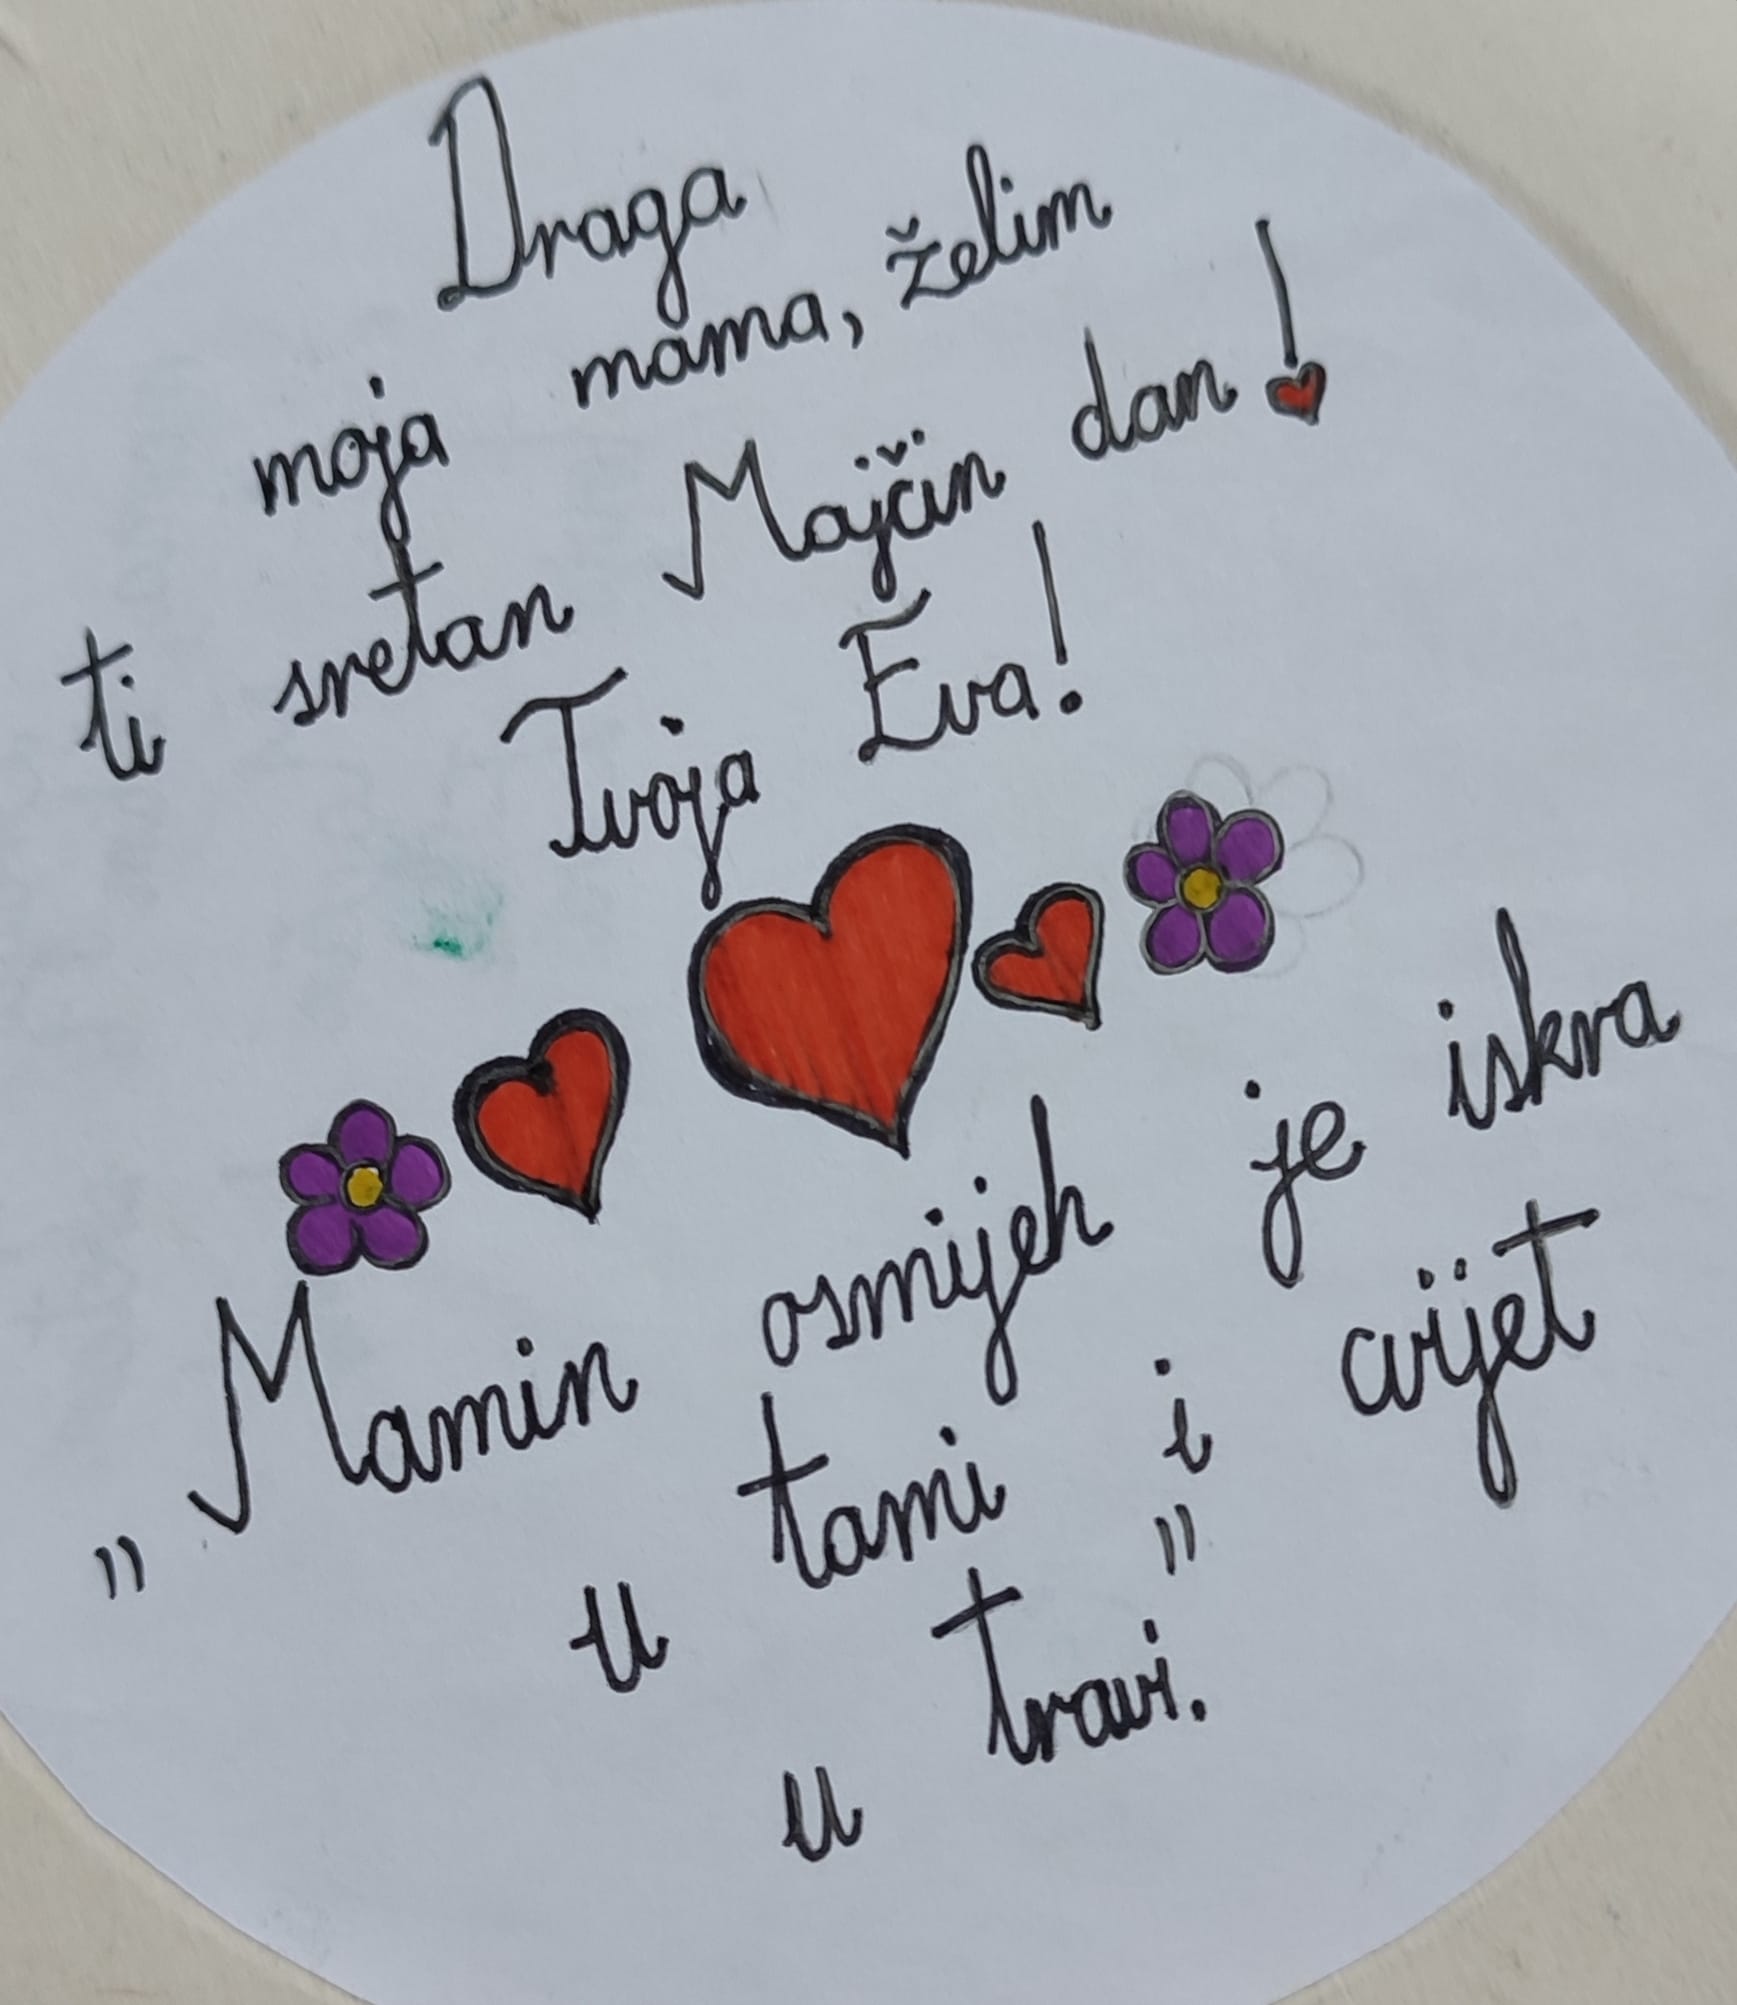 Draga
moja mama, želim
ti sretan Majčin dan!
Tvoja Eva!
„Mamin osmijeh je iskra
u tami i cvijet
u travi."